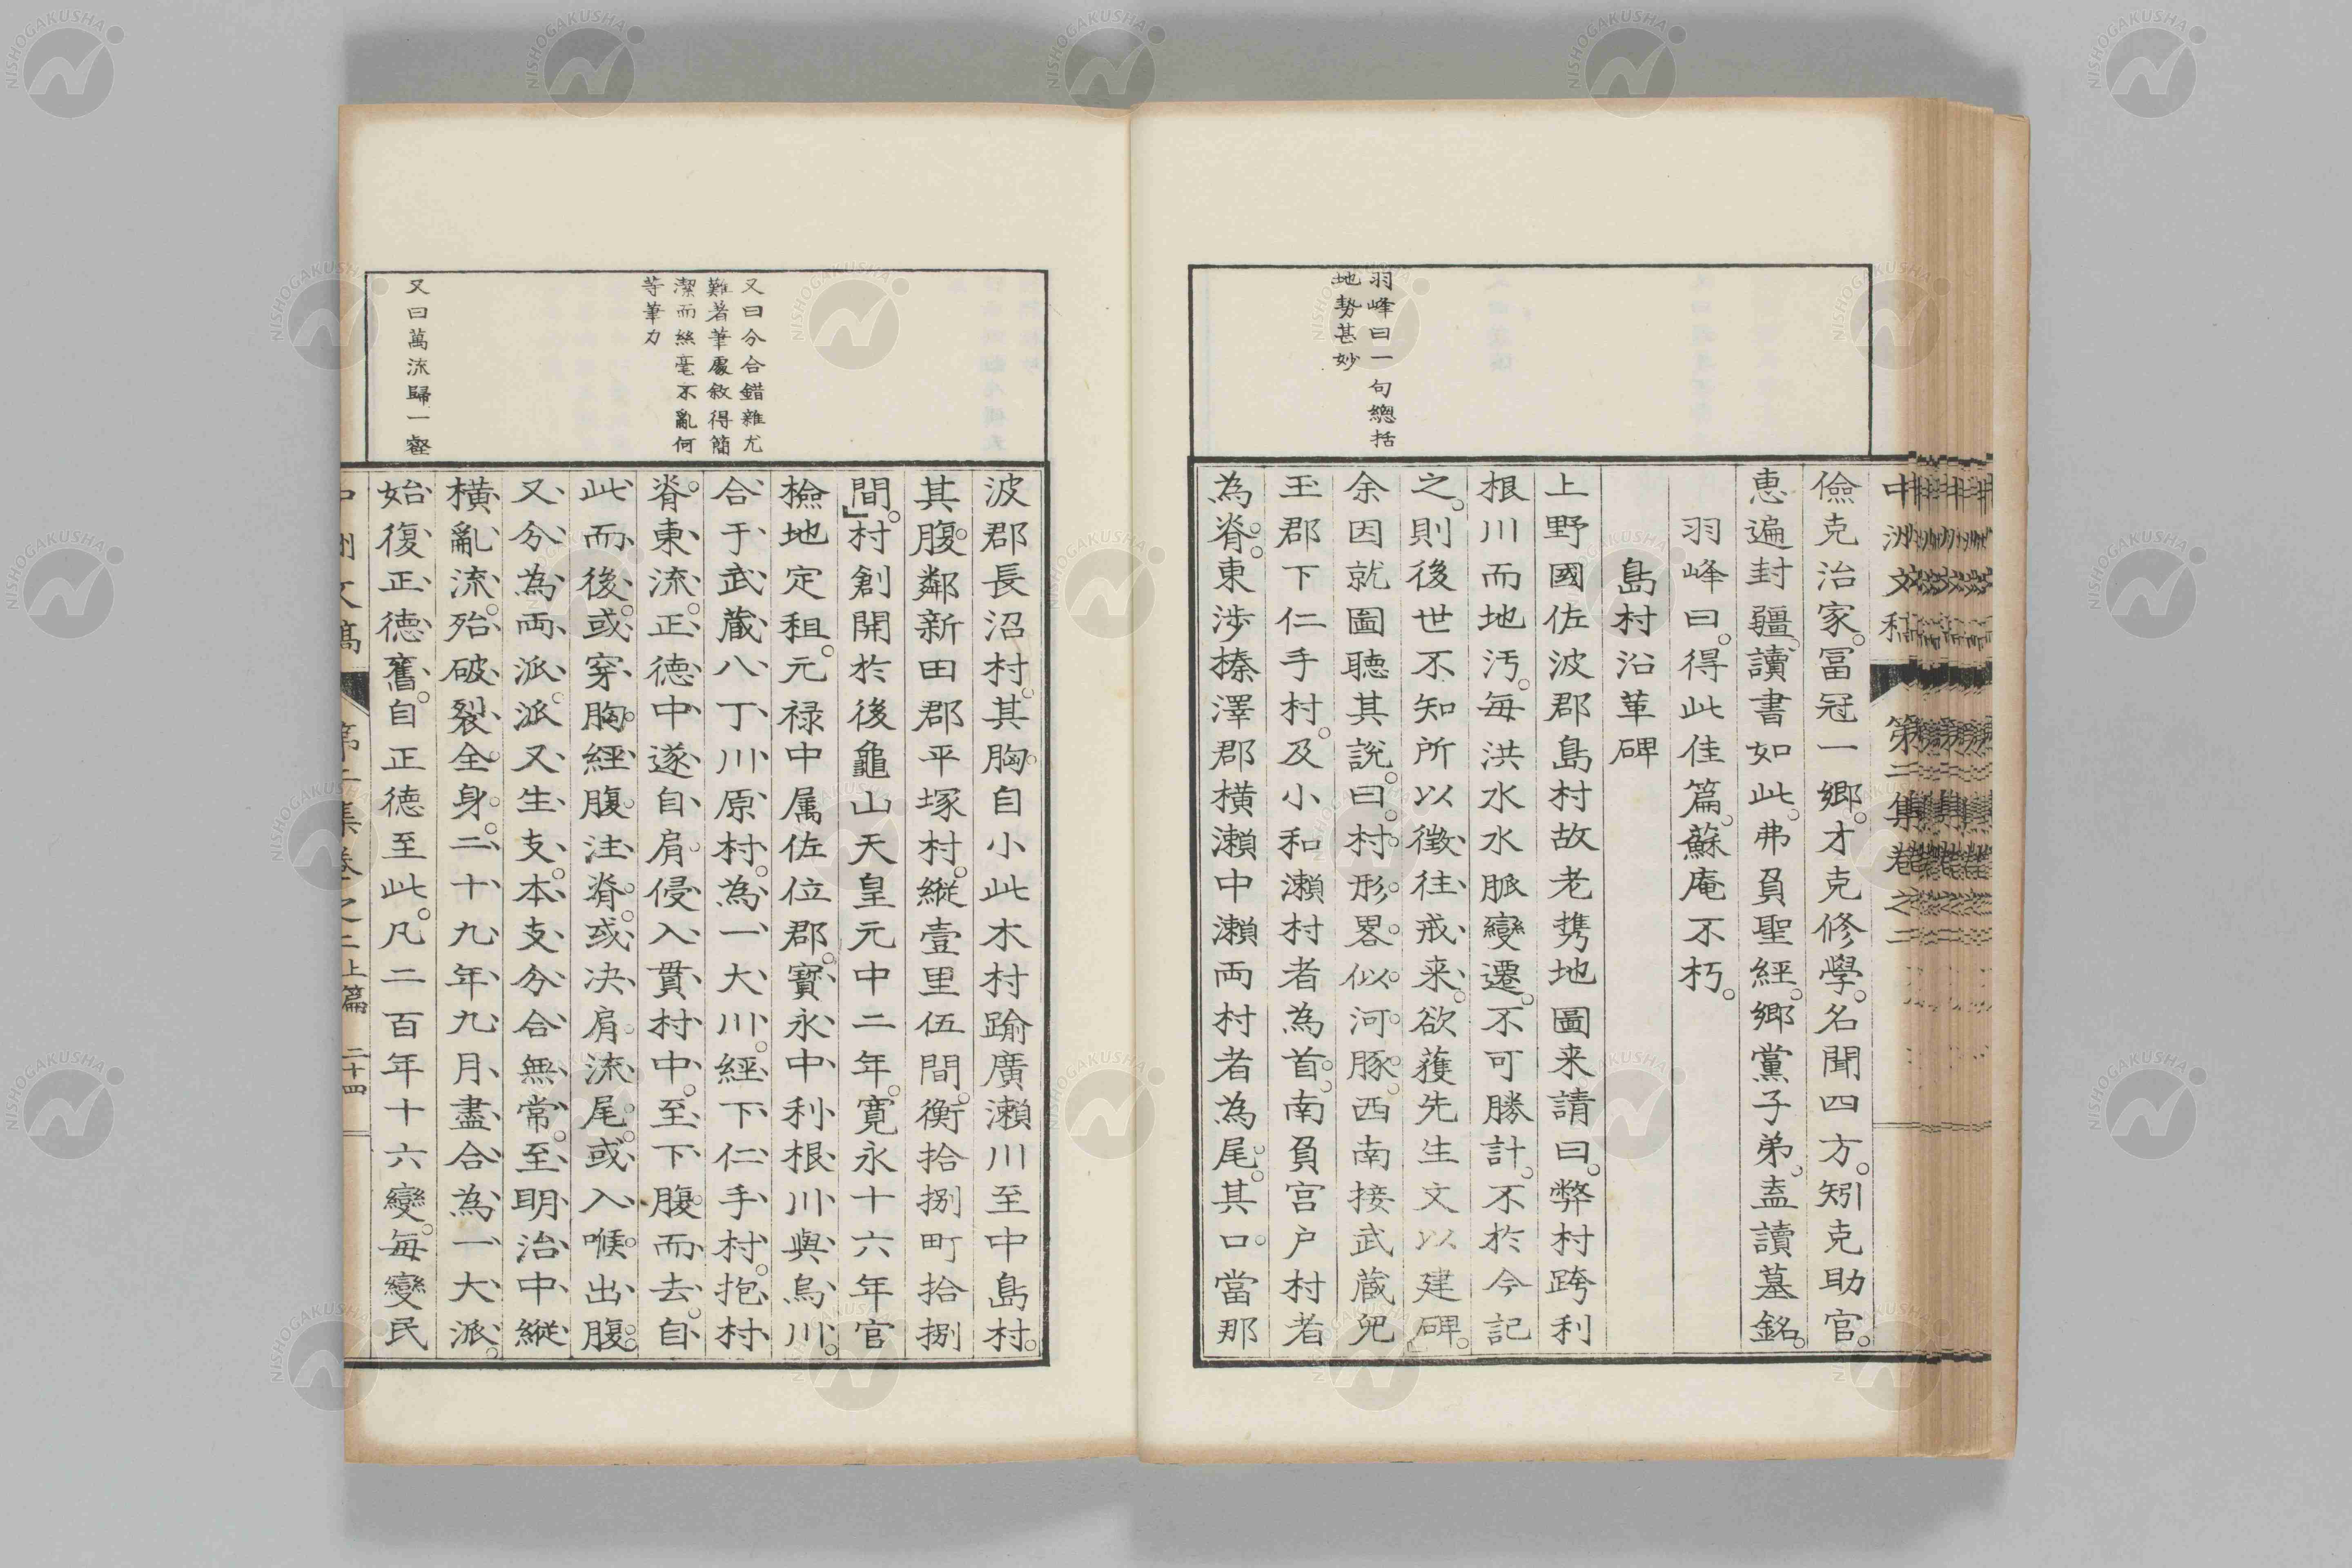 中洲文稿 第二集卷之二
儉克治家。冨冠一鄉。才克修學。名聞四方。矧克助官。
恵遍封疆。讀書如此。弗負聖經。鄉黨子弟。盍讀墓銘。
羽峰曰。得此佳篇。蘇庵不朽。
島村沿革碑
上野國佐波郡島村故老携地圖来請曰。弊村跨利
根川而地汚。每洪水水脈變遷。不可勝計。不於今記
之。則後世不知所以徵往戒来。欲蒦先生文以建碑。
余因就圖聽其說。曰。村形畧似河豚。西南接武蔵兒
玉郡下仁手村。及小和瀬村者為首。南負宮戸村者
為脊。東涉榛澤郡横瀬中瀬両村者為尾。其口當那
羽峰曰一句總括
地勢甚妙
波郡長沼村。其胸自小此木村踰廣瀬川至中島村。
其腹鄰新田郡平塚村。縱壹里伍間。衡拾捌町拾捌
間。」村創開於後龜山天皇元中二年。寛永十六年官
檢地定租。元禄中属佐位郡。寳永中利根川與烏川
合于武蔵八丁川原村。為一大川。經下仁手村。抱村
脊。東流。正徳中遂自肩侵入貫村中。至下腹而去。自
此而後。或穿胸經腹注脊。或决肩流尾。或入喉出腹。
又分為両派。派又生支。本支分合無常。至明治中縱
横亂流。殆破裂全身。二十九年九月盡合為一大派。
始復正徳舊。自正徳至此。凡二百年十六變。每變民
又曰分合錯雜尤
難著筆處敘得簡
潔而絲毫不亂何
等筆力
又曰萬流歸一壑
中洲文稿 第二集卷之二上篇 二十四